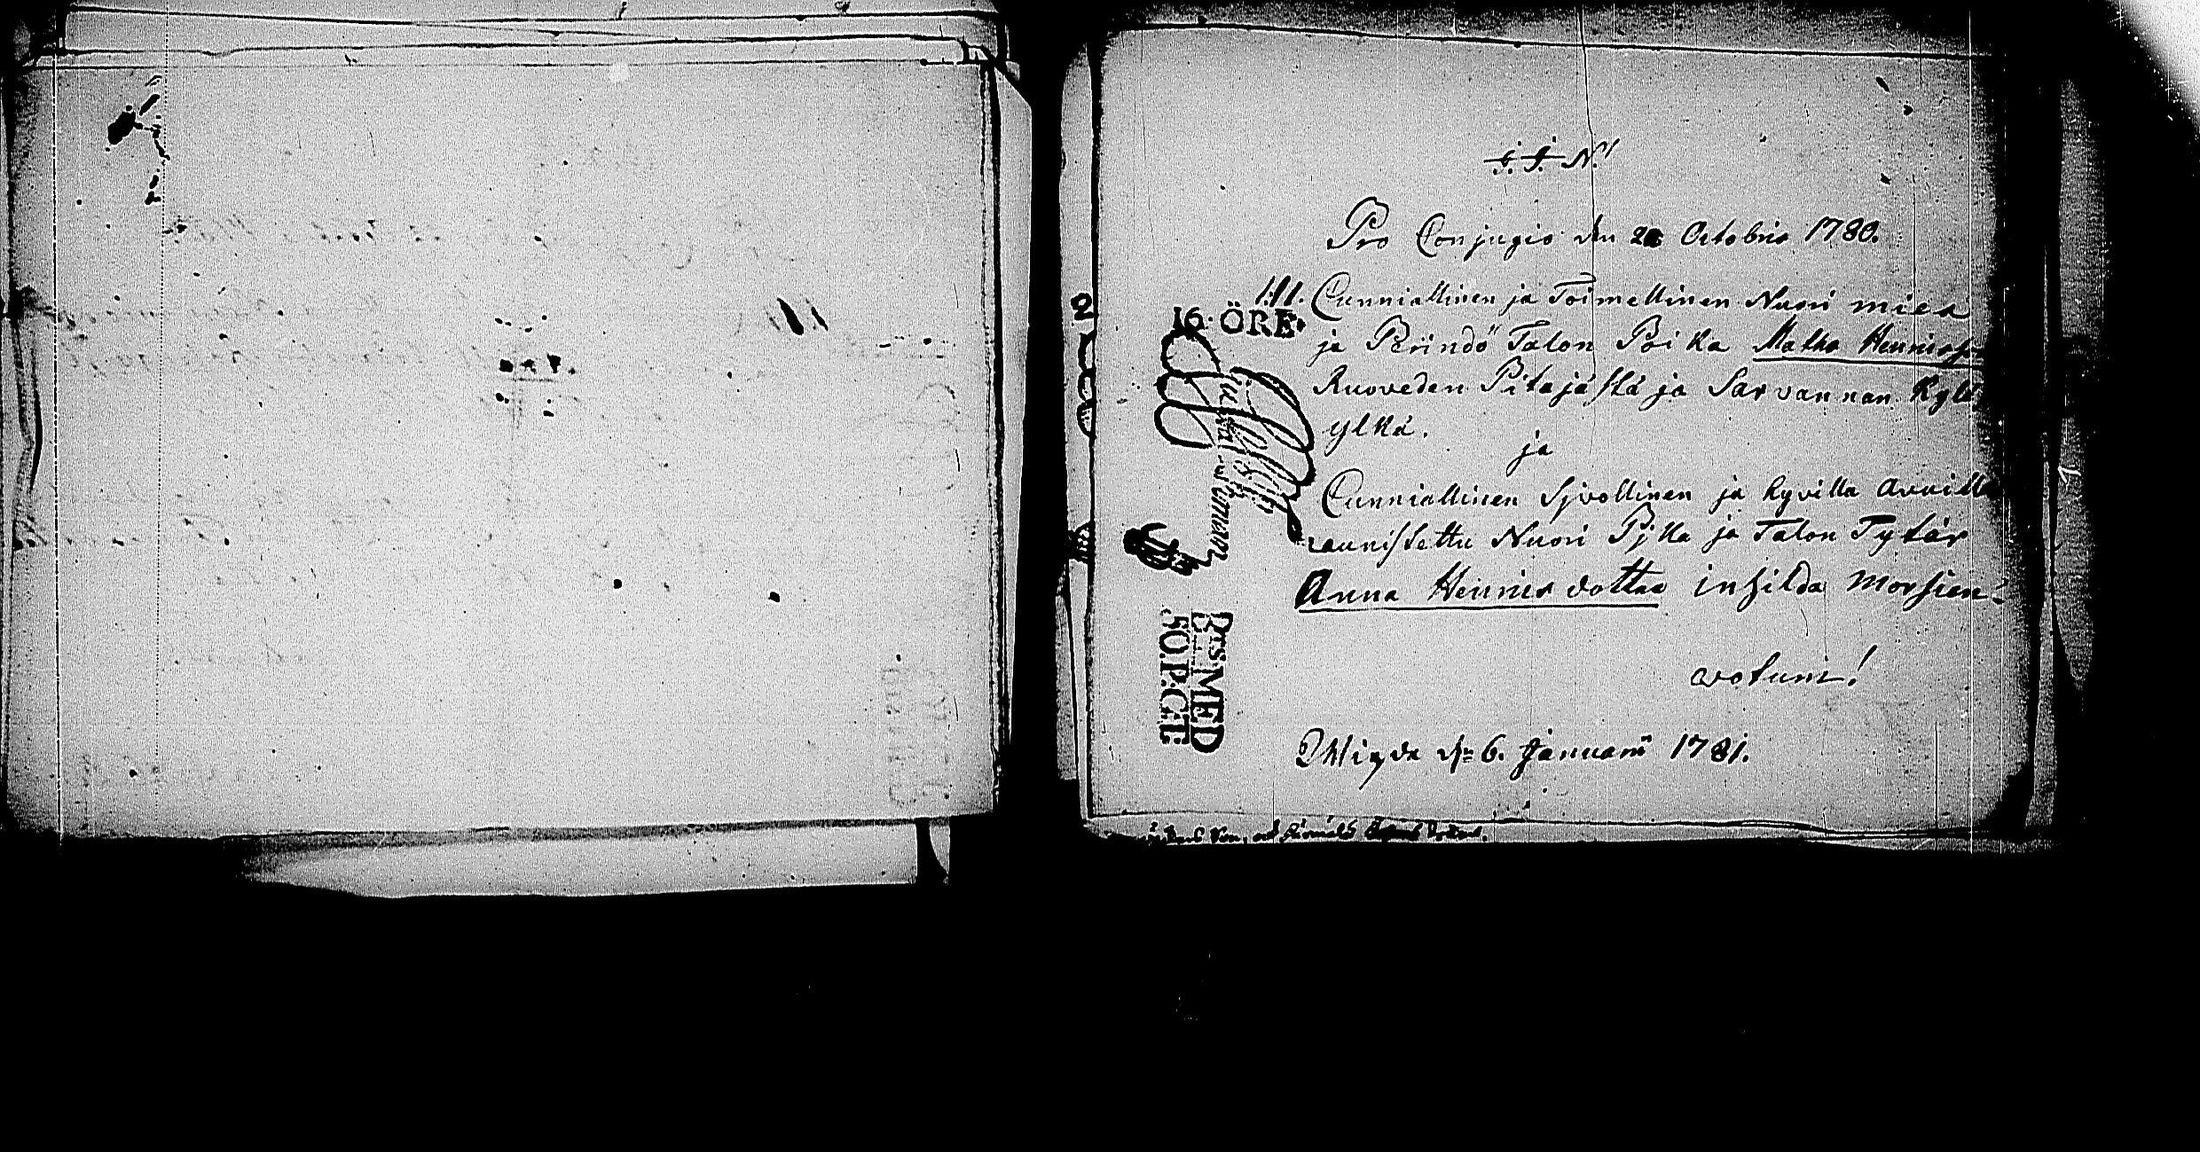 J. J. N.!
Pro Conjugio den 2 Octobris 1780.
1:11. Cunniallinen ja Toimellinen Nuori mies
16. ÖRE.
ja Perindö Talon Poika Matho Henricss
Ruoveden Pitäjästä ja Sarvannan Kylä
ylkä.
ja
Cunniallinen Sjvollinen ja hyvillä avuilla
caunistettu Nuori Pjka ja Talon Tytär
Anna Henrics dotter in hilda Morsien.
votum!
den 6. Januarii 1781.
Brs MED
50.P:CT